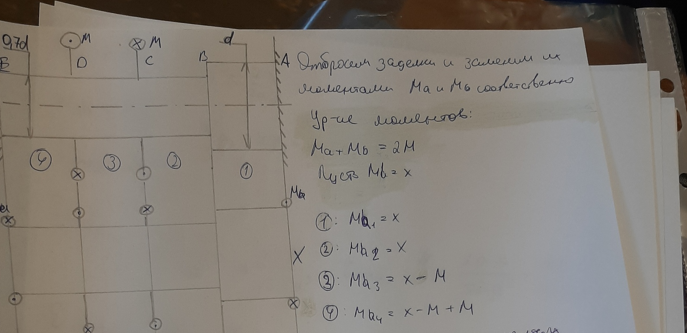 0,7d
M
M
d
E
D
C
B
A
Отбросим заделки и заменим их
моментами Ma и Mb соответственно
Ур-ие моментов:
Ma + Mb = 2M
Пусть Mb = x
④ ③ ② ①
①: Mb₁ = x
②: Mb₂ = x
③: Mb₃ = x - M
④: Mb₄ = x - M + M
X